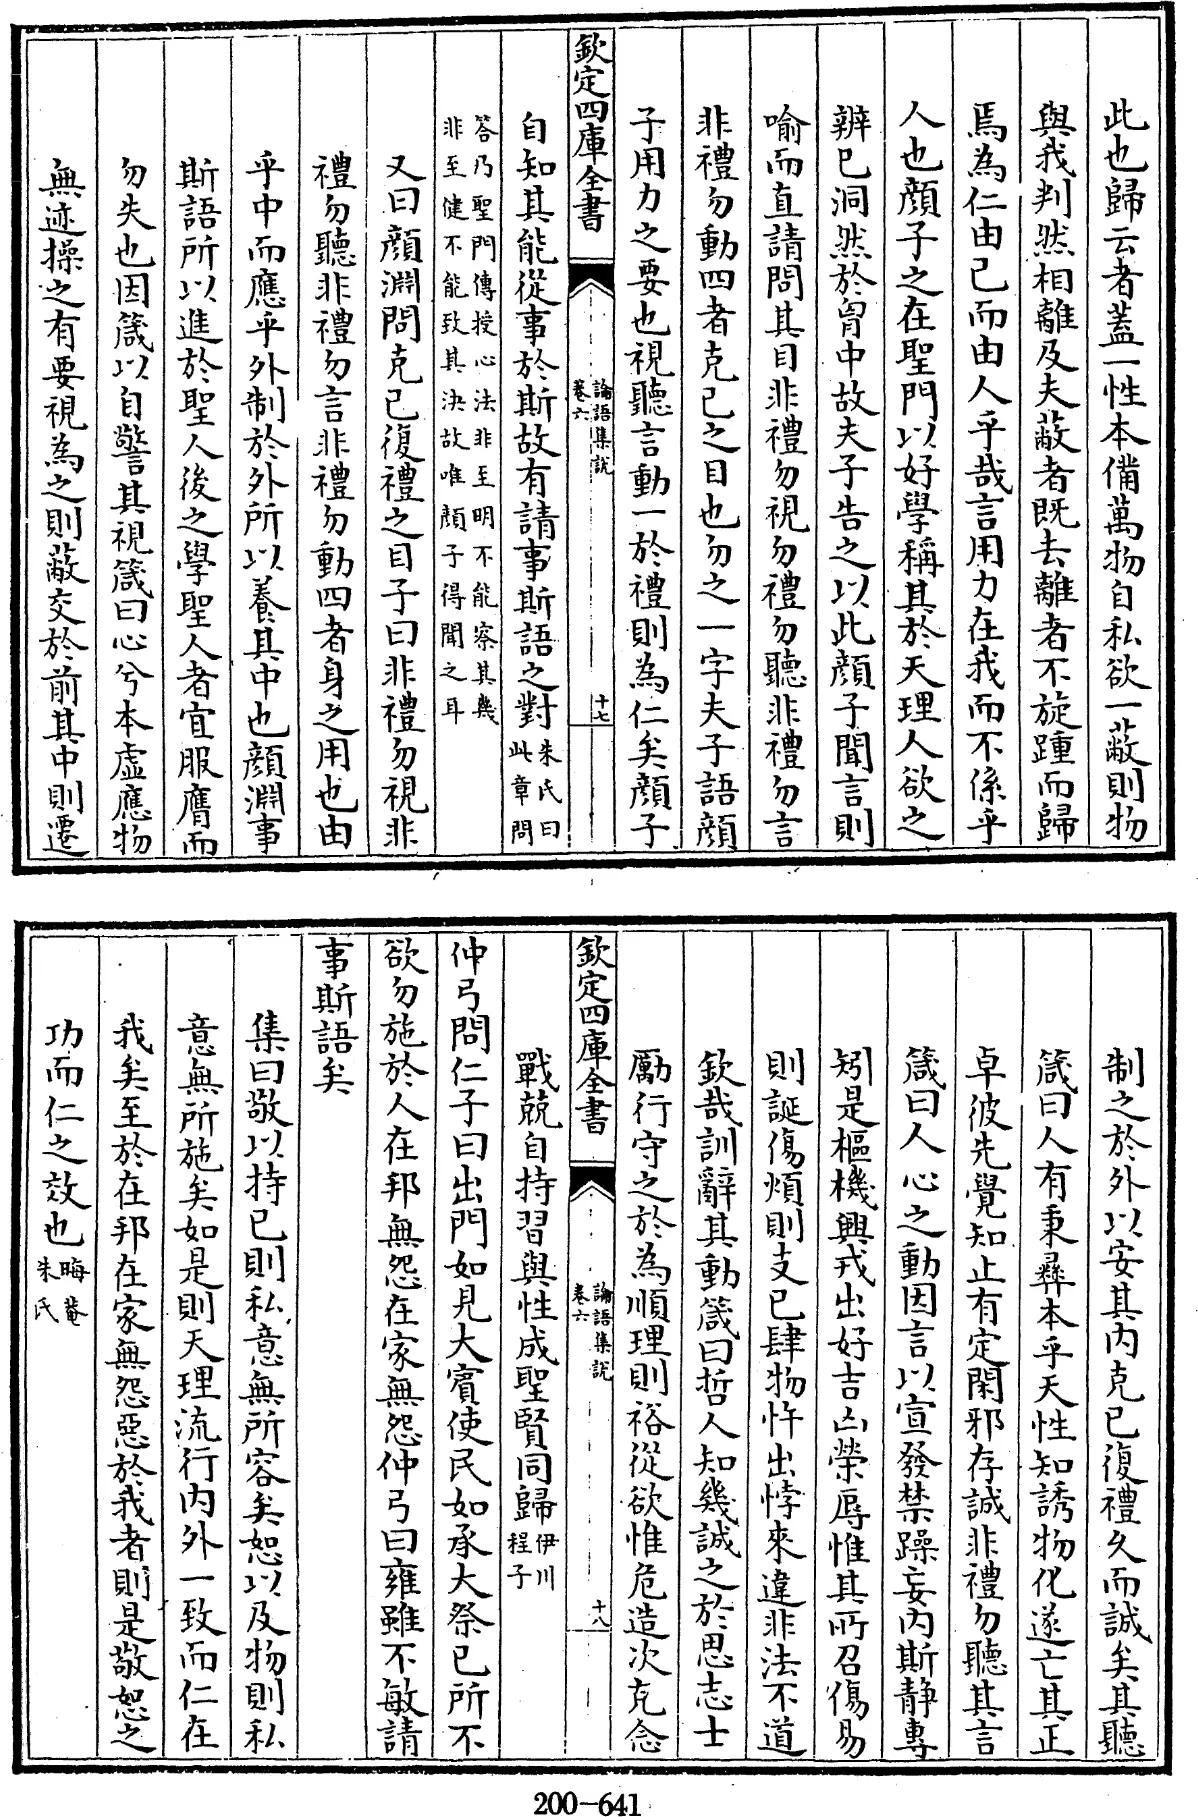 此也歸云者蓋一性本備萬物自私欲一蔽則物
與我判然相離及夫蔽者既去離者不旋踵而歸
焉為仁由己而由人乎哉言用力在我而不係乎
人也顏子之在聖門以好學稱其於天理人欲之
辨已洞然於胷中故夫子告之以此顏子聞言則
喻而直請問其目非禮勿視勿禮勿聽非禮勿言
非禮勿動四者克己之目也勿之一字夫子語顏
子用力之要也視聽言動一於禮則為仁矣顏子
欽定四庫全書
論語集說
卷六
十七
自知其能從事於斯故有請事斯語之對朱氏曰
此章問
答乃聖門傳授心法非至明不能察其幾
非至健不能致其決故唯顏子得聞之耳
又曰顏淵問克己復禮之目子曰非禮勿視非
禮勿聽非禮勿言非禮勿動四者身之用也由
乎中而應乎外制於外所以養其中也顏淵事
斯語所以進於聖人後之學聖人者宜服膺而
勿失也因箴以自警其視箴曰心兮本虛應物
無迹操之有要視為之則蔽交於前其中則遷
制之於外以安其內克己復禮久而誠矣其聽
箴曰人有秉彝本乎天性知誘物化遂亡其正
卓彼先覺知止有定閑邪存誠非禮勿聽其言
箴曰人心之動因言以宣發禁躁妄內斯靜專
矧是樞機興戎出好吉凶榮辱惟其所召傷易
則誕傷煩則支已肆物忤出悖來違非法不道
欽哉訓辭其動箴曰哲人知幾誠之於思志士
勵行守之於為順理則裕從欲惟危造次克念
欽定四庫全書
論語集說
卷六
十八
戰兢自持習與性成聖賢同歸伊川
程子
仲弓問仁子曰出門如見大賓使民如承大祭已所不
欲勿施於人在邦無怨在家無怨仲弓曰雍雖不敏請
事斯語矣
集曰敬以持己則私意無所容矣恕以及物則私
意無所施矣如是則天理流行內外一致而仁在
我矣至於在邦在家無怨惡於我者則是敬恕之
功而仁之效也晦菴
朱氏
200-641